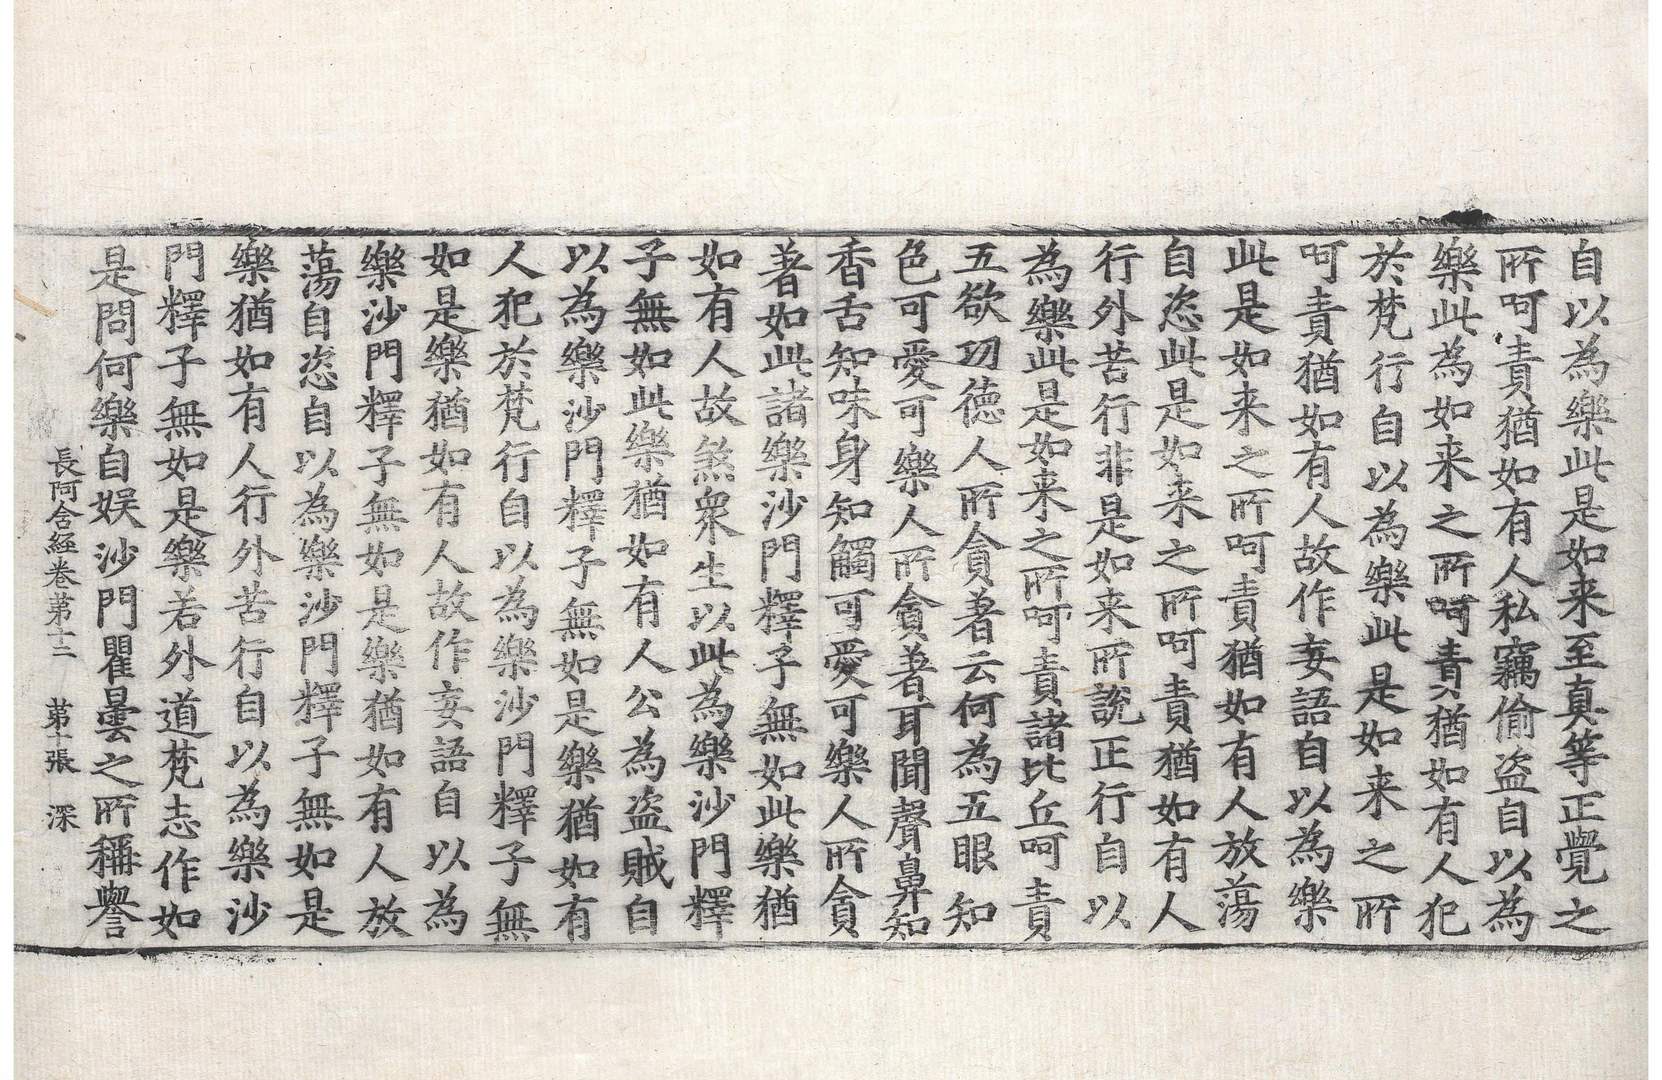 自以為樂此是如来至真等正覺之
所呵責猶如有人私竊偷盗自以為
樂此為如来之所呵責猶如有人犯
於梵行自以為樂此是如来之所
呵責猶如有人故作妄語自以為樂
此是如来之所呵責猶如有人放蕩
自恣此是如来之所呵責猶如有人
行外苦行非是如来所說正行自以
為樂此是如来之所呵責諸比丘呵責
五欲功德人所貪著云何為五眼知
色可愛可樂人所貪著耳聞聲鼻知
香舌知味身知觸可愛可樂人所貪
著如此諸樂沙門釋子無如此樂猶
如有人故煞衆生以此為樂沙門釋
子無如此樂猶如有人公為盗賊自
以為樂沙門釋子無如是樂猶如有
人犯於梵行自以為樂沙門釋子無
如是樂猶如有人故作妄語自以為
樂沙門釋子無如是樂猶如有人放
蕩自恣自以為樂沙門釋子無如是
樂猶如有人行外苦行自以為樂沙
門釋子無如是樂若外道梵志作如
是問何樂自娛沙門瞿曇之所稱譽
長阿含經卷第十二 第十張 深